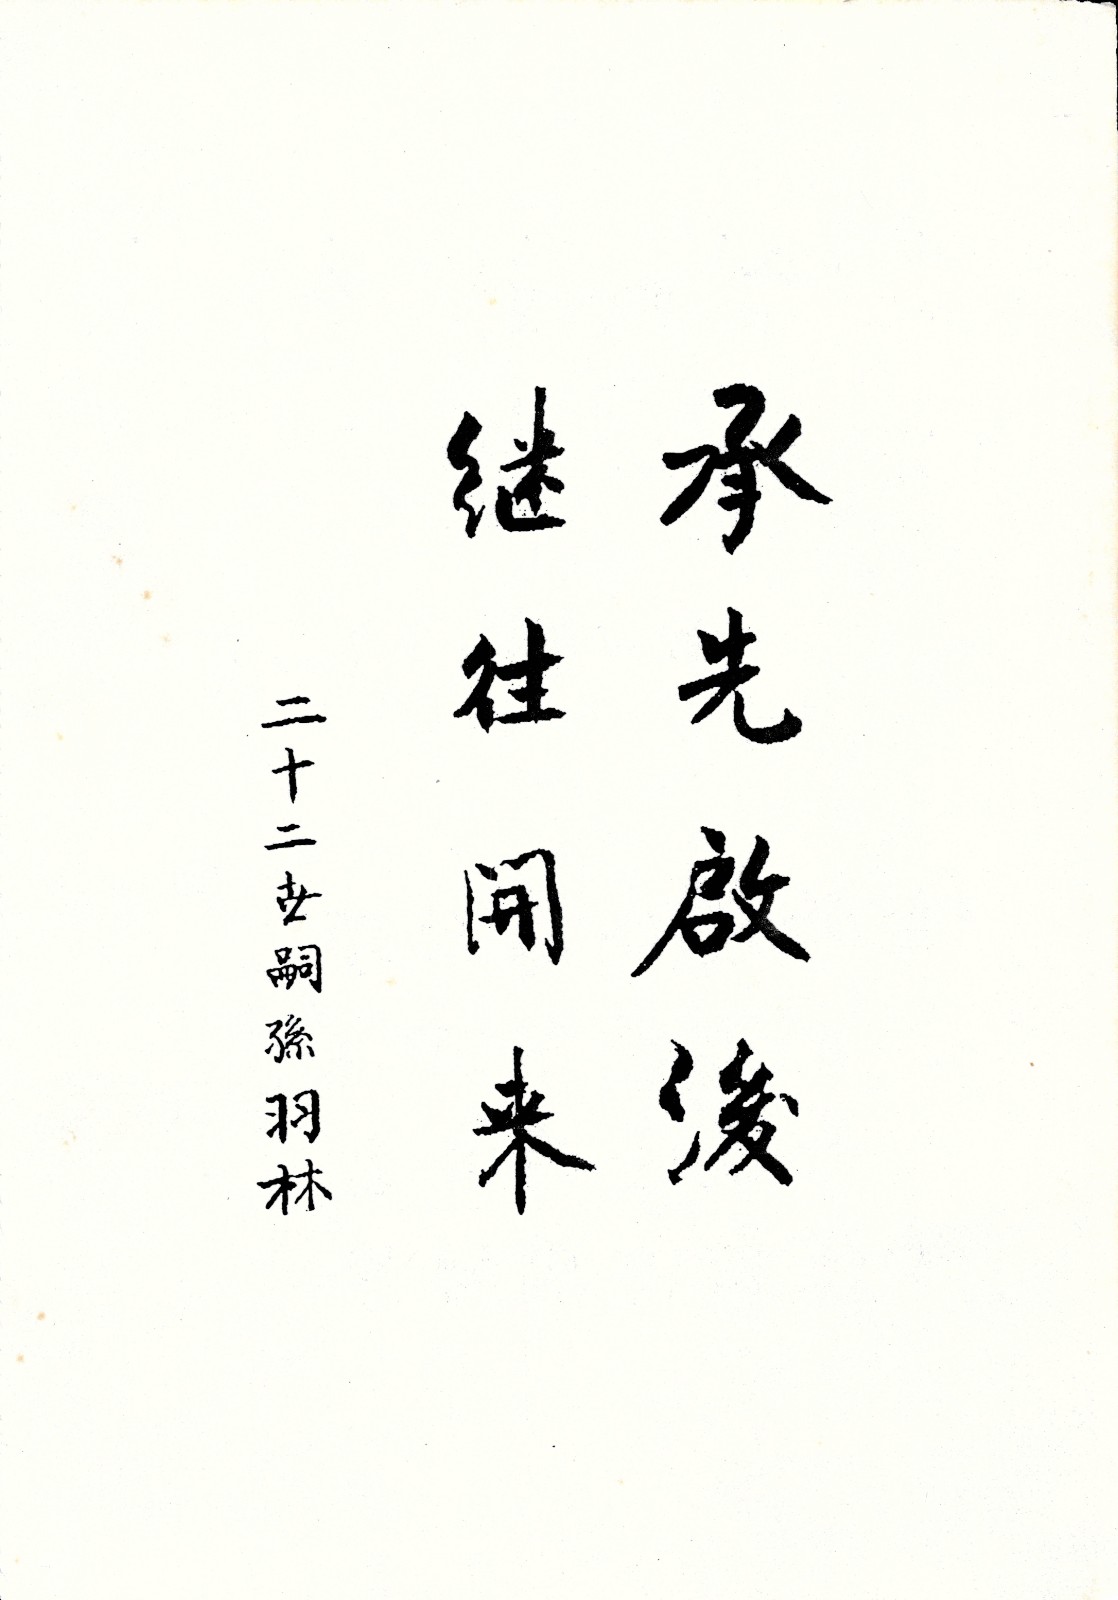 承先啟後
继往開来
二十二世嗣孫羽林